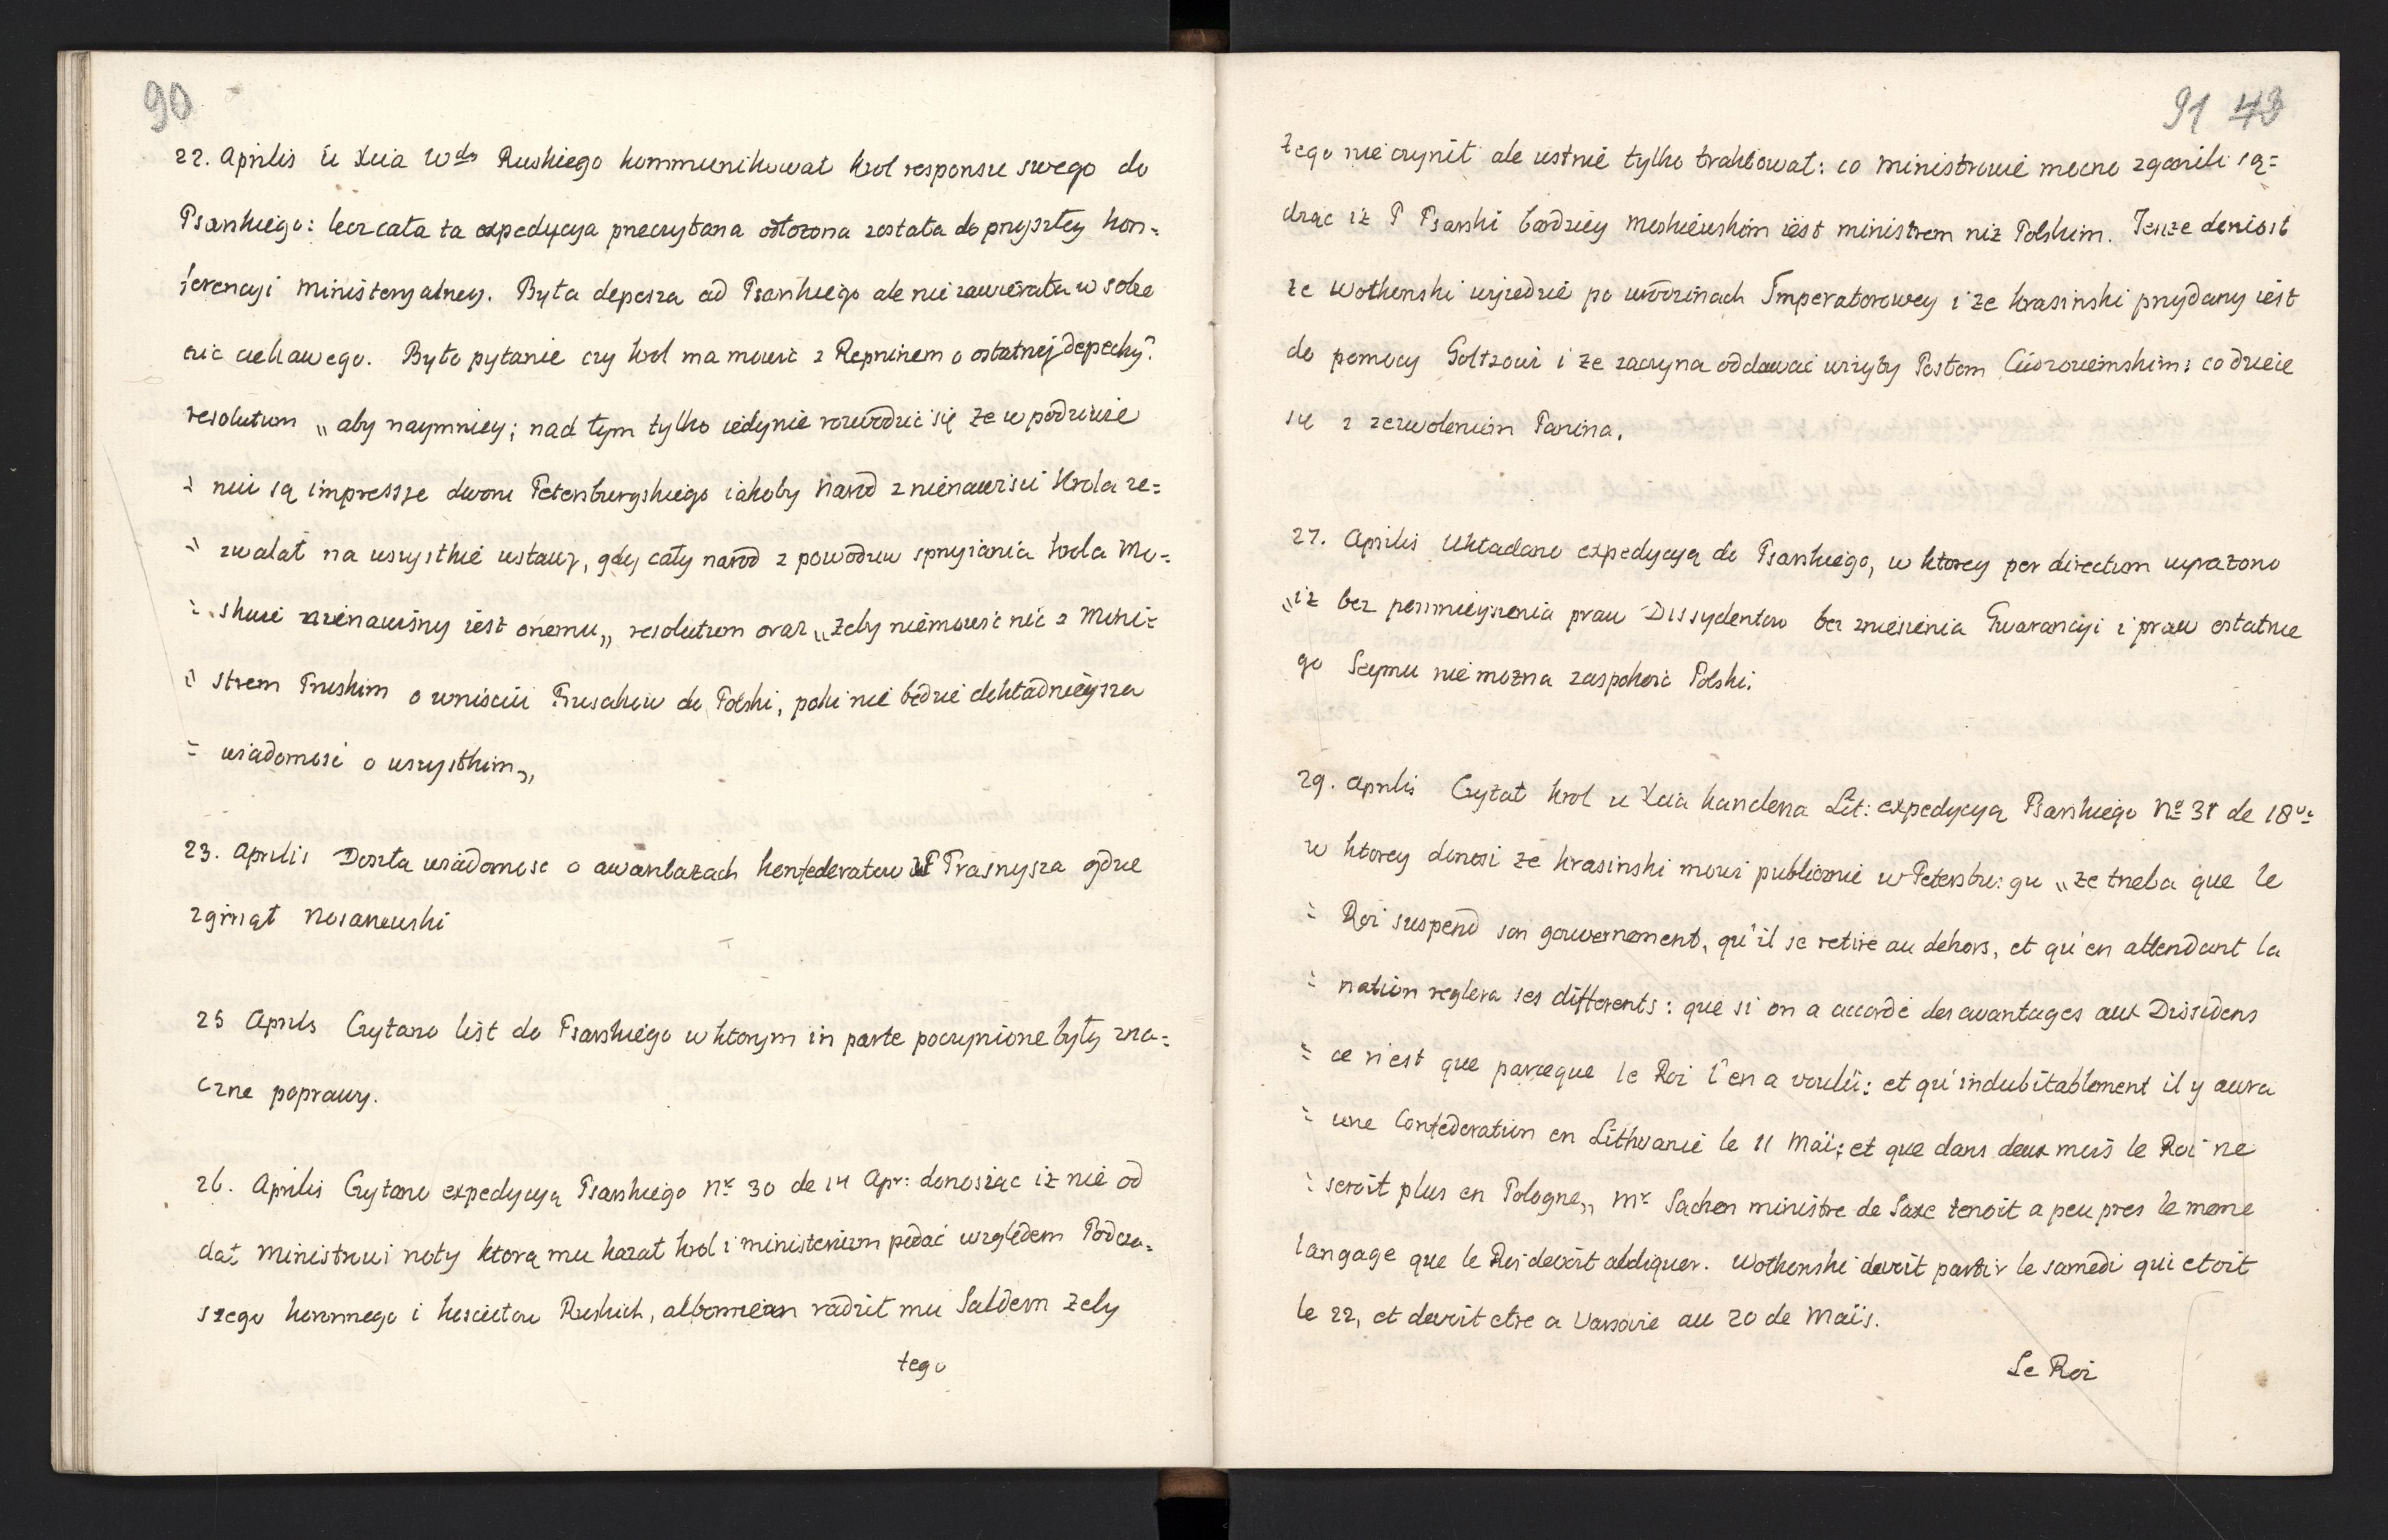 90
22. Aprilis u Xcia Wdy Ruskiego kommunikował Krol responsu swego do
Psarskiego: lecz cała ta expedycya przeczytana odłożona została do przyszłey kon=
ferencyi ministeryalney. Była depesza od Psarskiego ale nie zawierała w sobie
nic ciekawego. Było pytanie czy Krol ma mowić z Repninem o ostatniej depechy?
resolutum „aby naymniey; nad tym tylko iedynie rozwodzić się że w podziwie
„ niu są impressye dworu Petersburgskiego iakoby Narod z nienawisci Krola ze=
„ zwalał na wszystkie ustawy, gdy cały narod z powodów sprzyiania Krola Mo=
„ skwie nienawisny iest onemu„ resolutum oraz „żeby niemowić nic z Mini=
„ strem Pruskim o wnisciu Prusakow do Polski, poki nie będzie dokładnieysza
„ wiadomość o wszystkim„
23. Aprilis Doszła wiadomosc o awantażach konfederatow u Prasnysza gdzie
zginął Nosarzewski
25 Aprilis Czytano list do Psarskiego w ktorym in parte poczynione były zna=
czne poprawy.
26. Aprilis Czytano expedycyą Psarskiego Nr 30 de 14 Apr: donosząc iż nie od
dał Ministrowi noty ktorą mu kazał Krol i ministerium podać względem Podcza=
szego koronnego i kosciołow Ruskich, albowiem radził mu Saldern żeby
tego
91 48
tego nie czynił ale ustnie tylko traktował: co ministrowie mocno zganili są=
dząc iż P Psarski bardziey Moskiewskim iest ministrem niż Polskim. Tenże doniosł
że Wołkonski wyiedzie po urodzinach Imperatorowey i że Krasinski przydany iest
do pomocy Goltzowi i że zaczyna oddawać wizyty Posłom Cudzoziemskim: co dzieie
się z zezwoleniem Panina.
27. Aprilis Układano expedycyą do Psarskiego, w ktorey per directum wyrażono
„iż bez pomnieyszenia praw Dissydentow bez zniesienia Gwarancyi i praw ostatnie
go Seymu nie można zaspokoić Polski.
29. Aprilis Czytał Krol u Xcia Kanclerza Lit: expedycyą Psarskiego No 31 de 18va
w ktorey donosi że Krasinski mowi publicznie w Petersburgu „że trzeba que le
„ Roi suspend son gouvernement, qu'il se retire au dehors, et qu'en attendant la
„ nation reglera ses differents: que si on a accordé des avantages aux Dissidens
„ ce n'est que parceque le Roi l'en a voulü: et qu'indubitablement il y aura
„ une Confederation en Lithuanie le 11 Mai; et que dans deux mois le Roi ne
„ seroit plus en Pologne„ Mr Sachen ministre de Saxe tenoit a peu pres le meme
langage que le Roi devoit abdiquer. Wołkonski devoit partir le samedi qui etoit
le 22, et devoit etre a Varsovie au 20 de Maïs.
Le Roi